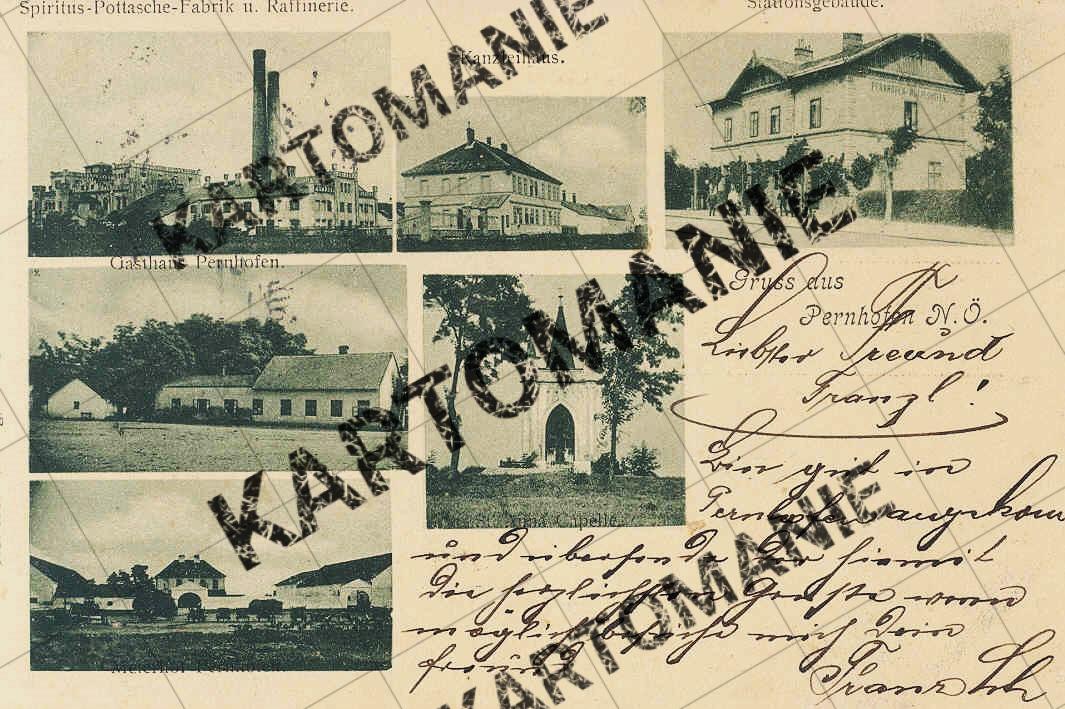 Spiritus-Pottasche-Fabrik u. Raffinerie.
Stationsgebäude.
Kanzleihaus.
PERNHOFEN-WULZESHOFEN
Gasthaus Pernhofen.
Gruss aus
Pernhofen N.Ö.
Liebster Freund
Franzl!
Bin gut in
Pernhofen angekom
und übersende Dir hiemit
die herzlichsten Grüße wenn
möglich besuche mich dein
freund
Franz
Anna Capelle.
Meierhof Pernhofen.
KARTOMANIE
KARTOMANIE
KARTOMANIE
KARTOMANIE